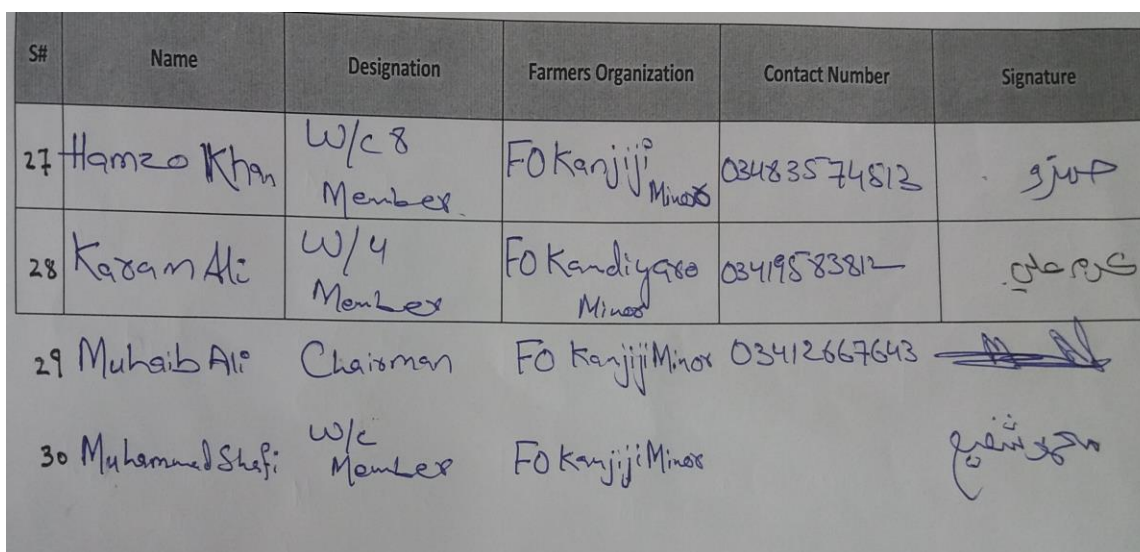 S# Name Designation Farmers Organization Contact Number Signature
27 Hamzo Khan W/c 8 Member FO Kanjiji Minor 03483574513 حمزو
28 Karam Ali W/4 Member FO Kandiyaro Minor 03419583812 ڪرم علي
29 Muhaib Ali Chairman FO Kanjiji Minor 03412667643
30 Muhammad Shafi W/c Member FO Kanjiji Minor محمد شفيع